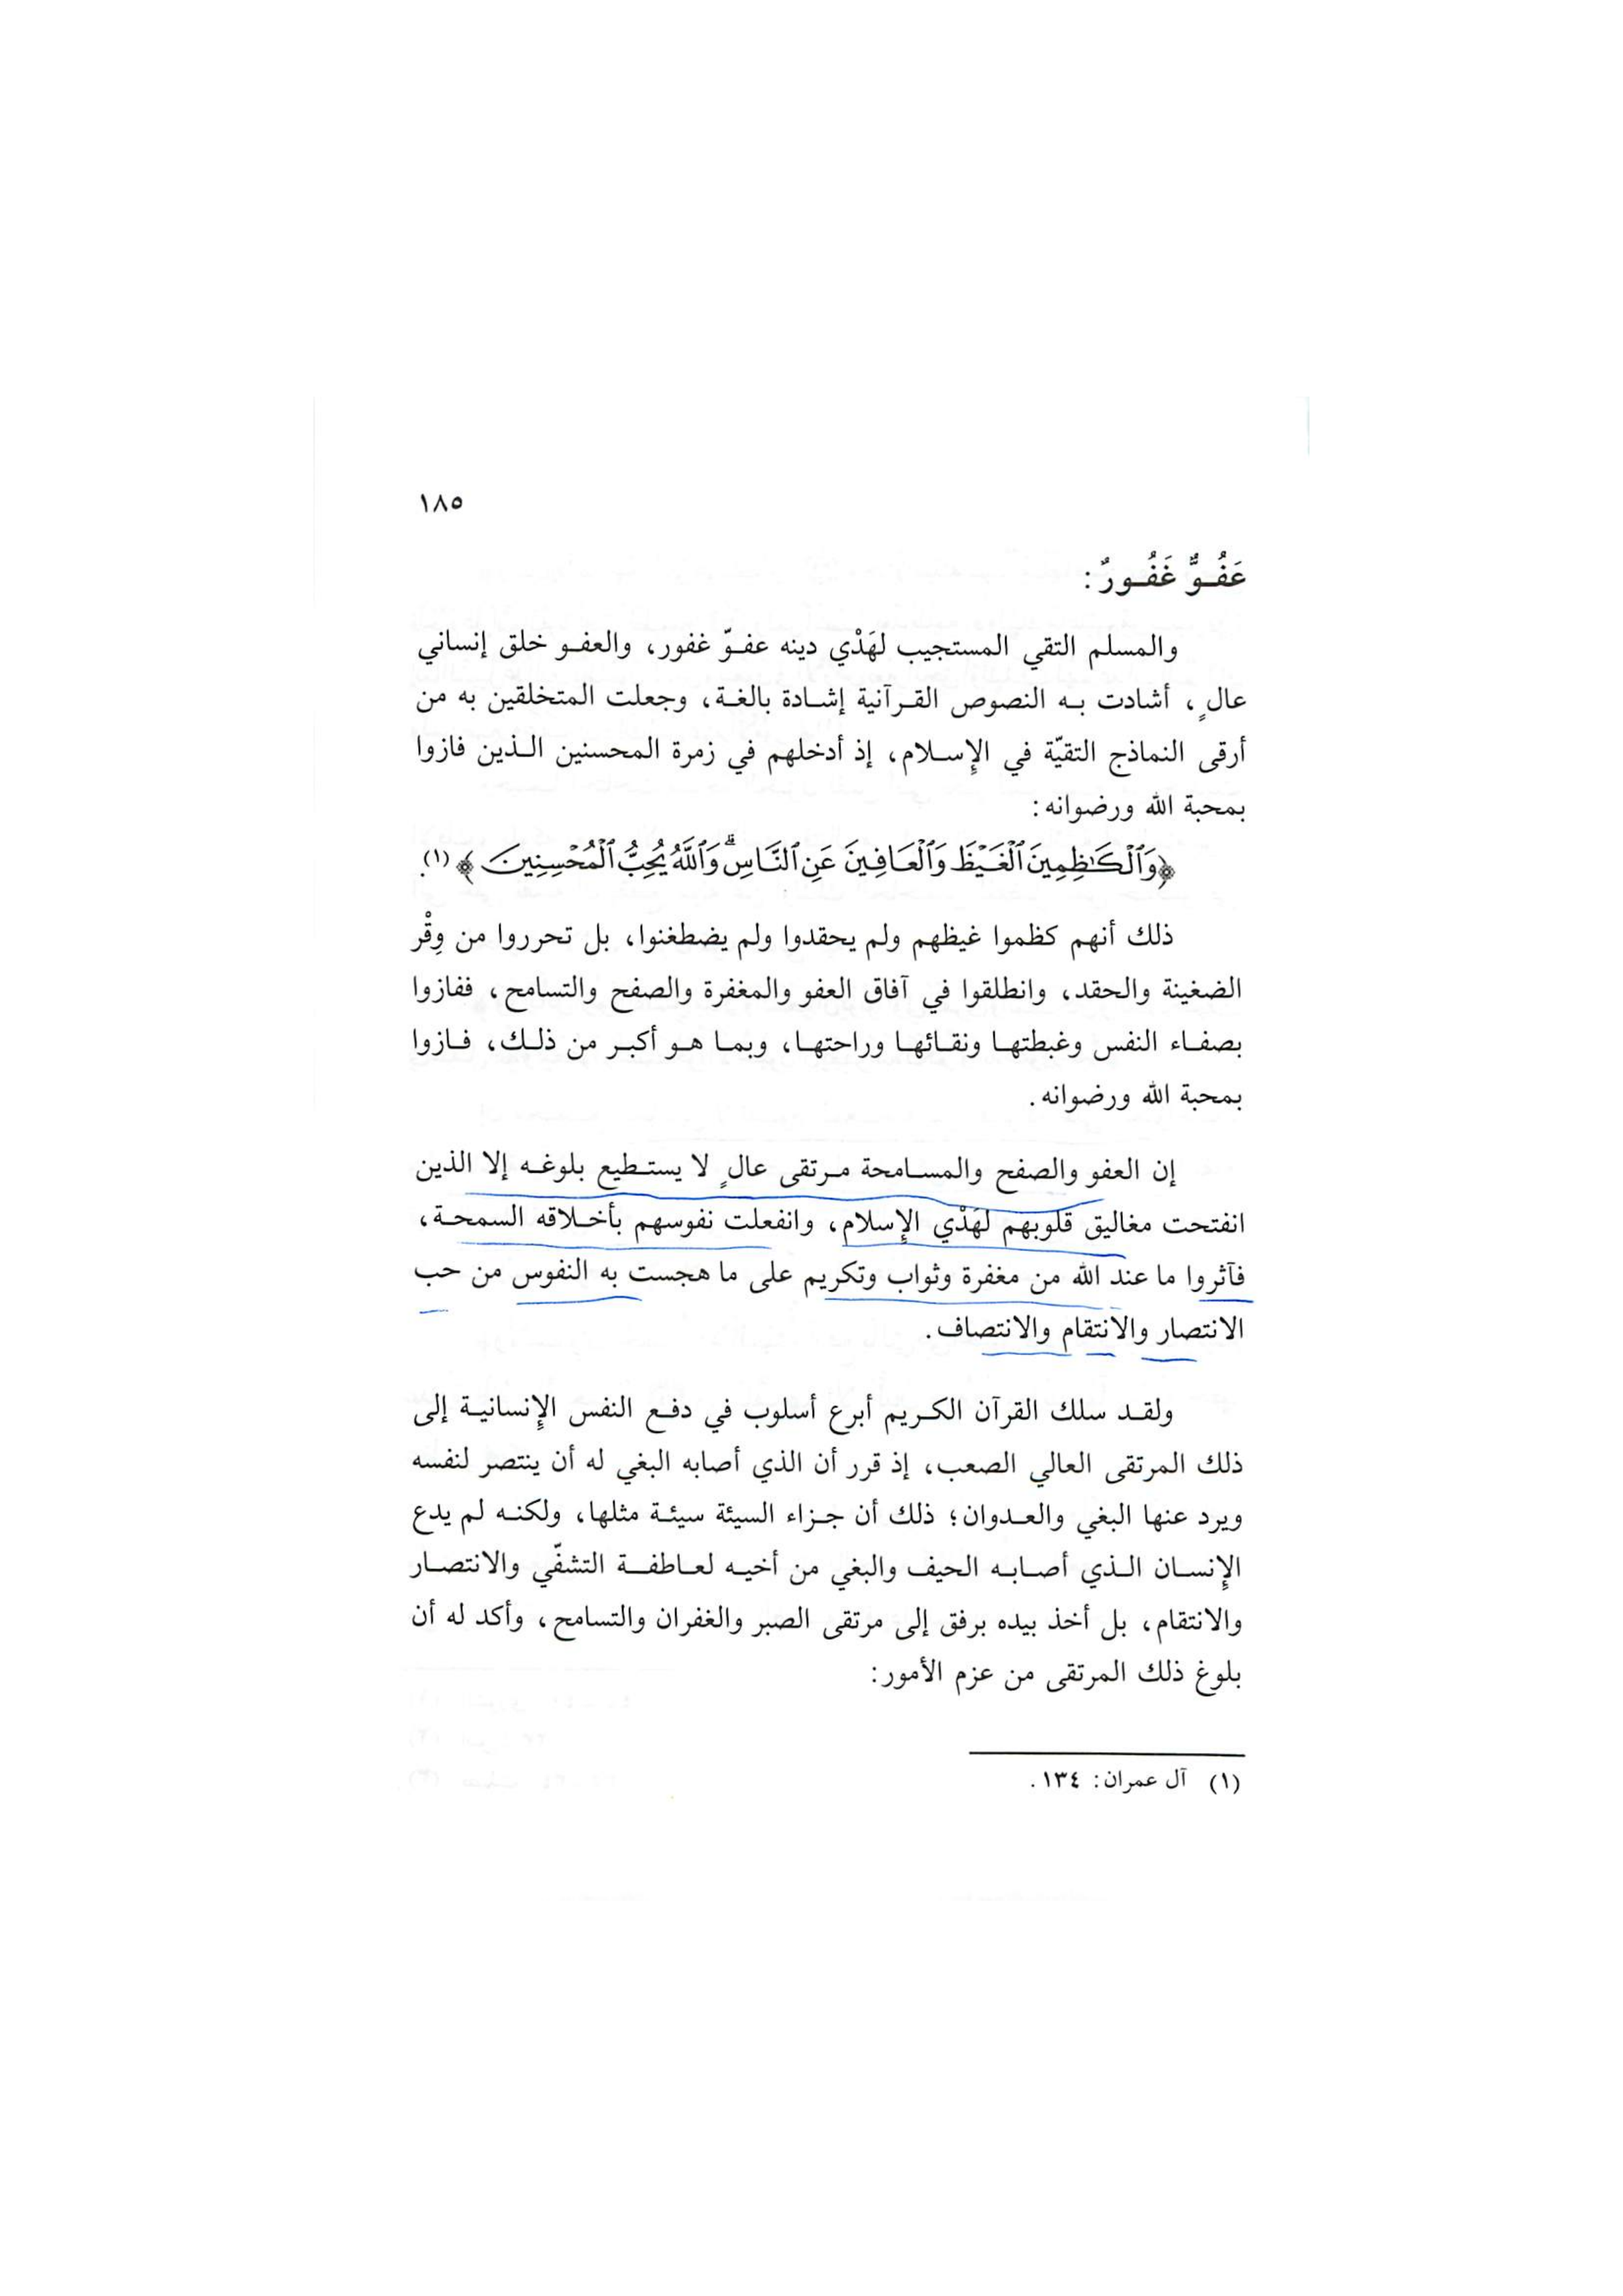 ١٨٥
عَفُـوٌّ غَفُـورٌ :
والمسلم التقي المستجيب لهَدْي دينه عفـوّ غفور، والعفـو خلق إنساني
عالٍ، أشادت بـه النصوص القـرآنية إشـادة بالغـة، وجعلت المتخلقين به من
أرقى النماذج التقيّة في الإِسـلام، إذ أدخلهم في زمرة المحسنين الـذين فازوا
بمحبة الله ورضوانه :
﴿وَٱلْكَـٰظِمِينَ ٱلْغَيْظَ وَٱلْعَافِينَ عَنِ ٱلنَّاسِۗ وَٱللَّهُ يُحِبُّ ٱلْمُحْسِنِينَ﴾(١).
ذلك أنهم كظموا غيظهم ولم يحقدوا ولم يضطغنوا، بل تحرروا من وِقْر
الضغينة والحقد، وانطلقوا في آفاق العفو والمغفرة والصفح والتسامح، ففازوا
بصفـاء النفس وغبطتهـا ونقـائهـا وراحتهـا، وبمـا هـو أكبـر من ذلـك، فـازوا
بمحبة الله ورضوانه.
إن العفو والصفح والمسـامحة مـرتقى عالٍ لا يستـطيع بلوغـه إلا الذين
انفتحت مغاليق قلوبهم لهَدْي الإِسلام، وانفعلت نفوسهم بأخـلاقه السمحـة،
فآثروا ما عند الله من مغفرة وثواب وتكريم على ما هجست به النفوس من حب
الانتصار والانتقام والانتصاف.
ولقـد سلك القرآن الكـريم أبرع أسلوب في دفـع النفس الإِنسانيـة إلى
ذلك المرتقى العالي الصعب، إذ قرر أن الذي أصابه البغي له أن ينتصر لنفسه
ويرد عنها البغي والعـدوان؛ ذلك أن جـزاء السيئة سيئـة مثلها، ولكنـه لم يدع
الإِنسـان الـذي أصـابـه الحيف والبغي من أخيـه لعـاطفـة التشفّي والانتصـار
والانتقام، بل أخذ بيده برفق إلى مرتقى الصبر والغفران والتسامح، وأكد له أن
بلوغ ذلك المرتقى من عزم الأمور:
(١) آل عمران: ١٣٤.